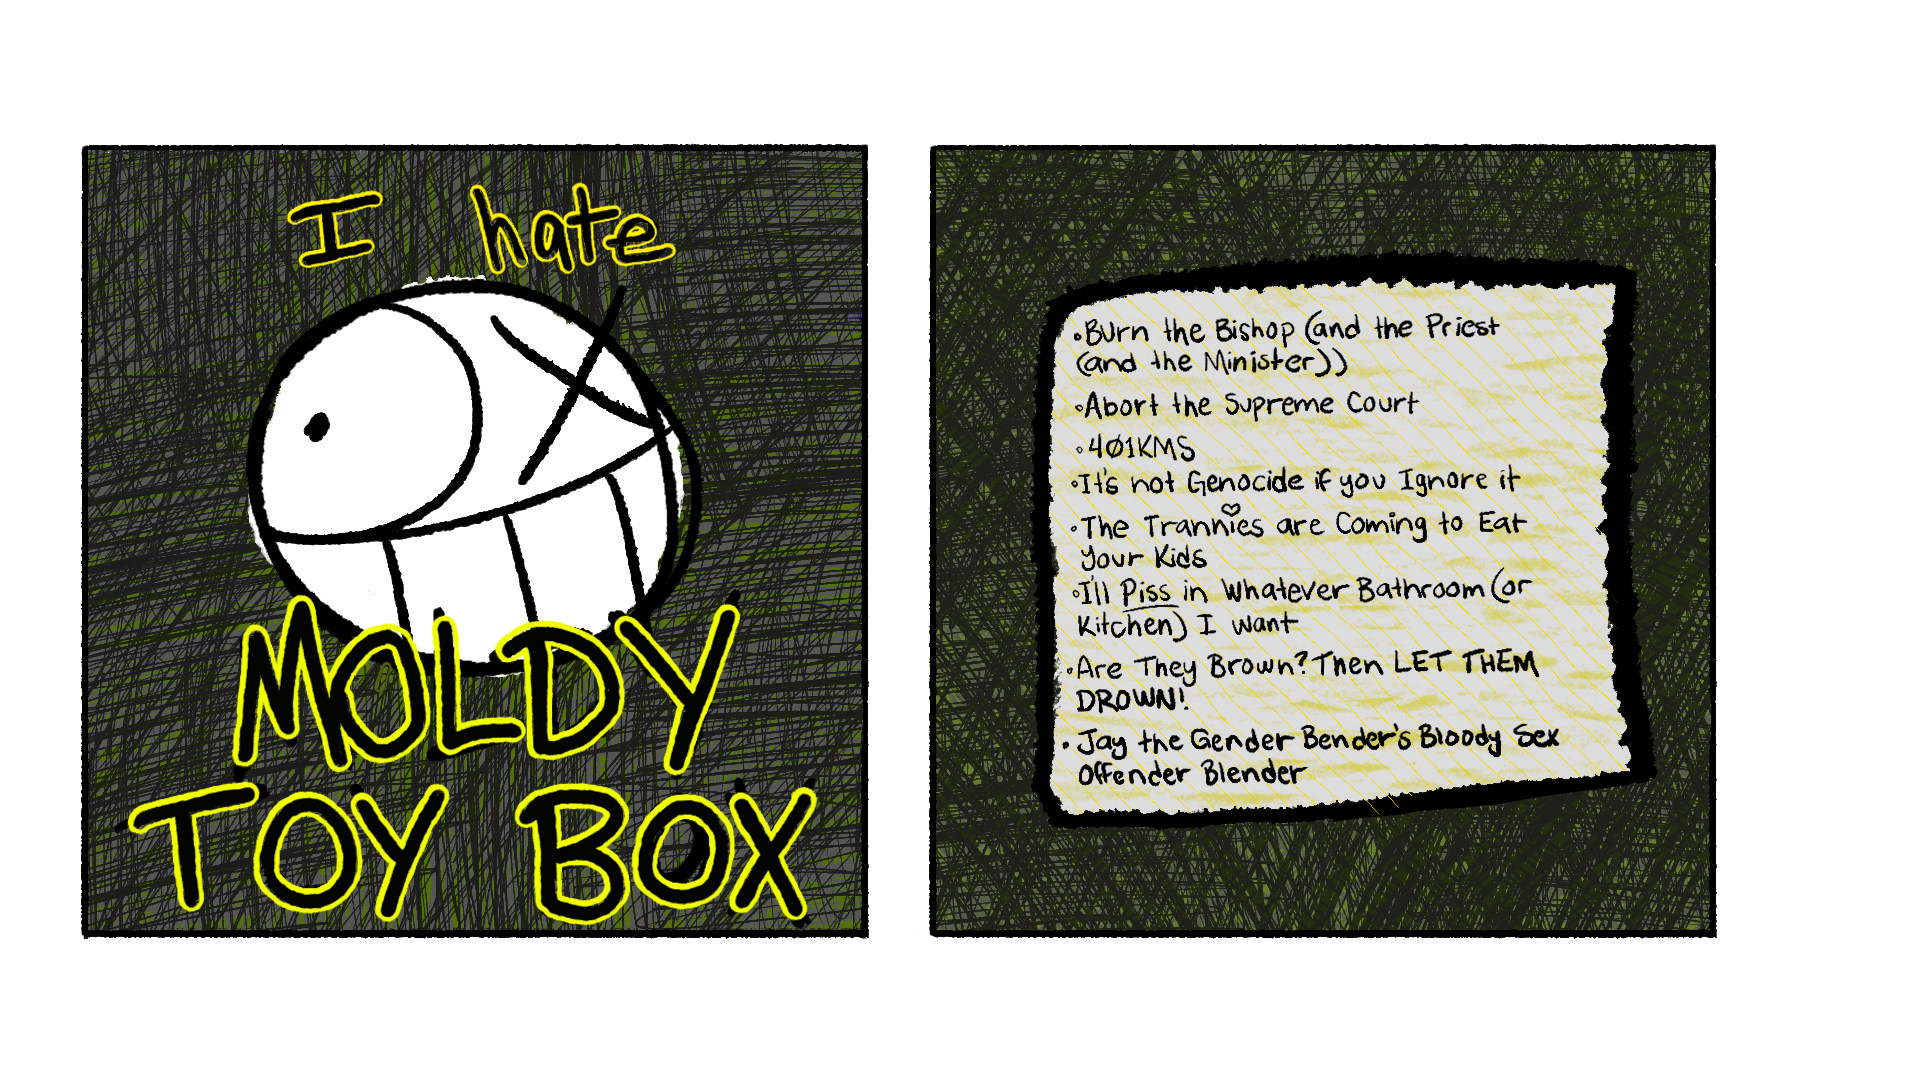 I hate
MOLDY
TOY BOX
•Burn the Bishop (and the Priest
(and the Minister))
•Abort the Supreme Court
•401KMS
•It's not Genocide if you Ignore it
•The Trannies are Coming to Eat
your Kids
•I'll Piss in Whatever Bathroom (or
Kitchen) I want
•Are They Brown? Then LET THEM
DROWN!
•Jay the Gender Bender's Bloody Sex
Offender Blender